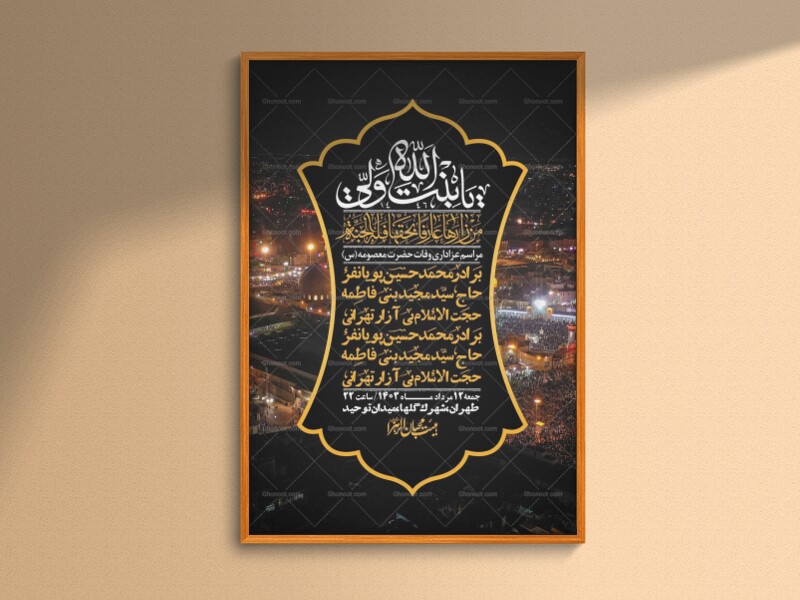 یا بنت ولیّ اللّه
من زارها عارفا بحقها فله الجنة
مراسم عزاداری وفات حضرت معصومه (س)
برادر محمدحسین پویانفر
حاج سیّد مجید بنی فاطمه
حجت الاسلام بی آزار تهرانی
برادر محمدحسین پویانفر
حاج سیّد مجید بنی فاطمه
حجت الاسلام بی آزار تهرانی
جمعه ۱۲ مرداد ماه ۱۴۰۳ / ساعت ۲۲
طهران، شهرک گلها، میدان توحید
هیئت محبان الزهرا
Ghonoot.com